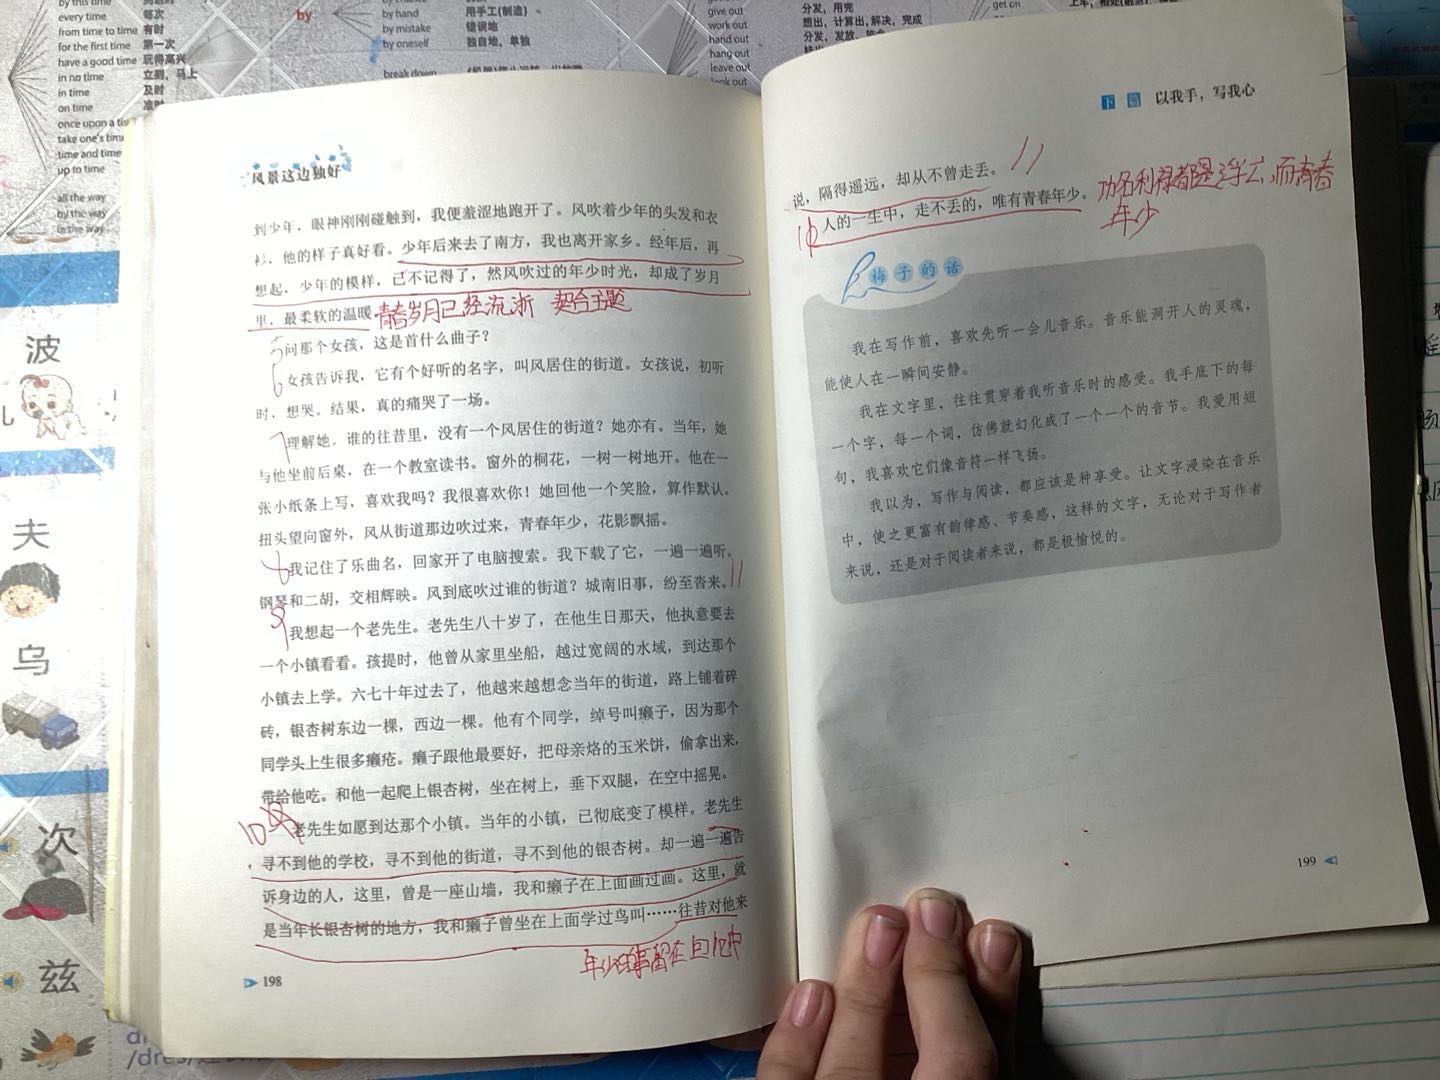 by this time
every time 每次
from time to time 有时
for the first time 第一次
have a good time 玩得高兴
in no time 立刻，马上
in time 及时
on time 准时
once upon a
take one's time
time and time
up to time
all the way
by the way
in the way
by
by hand 用手工(制造)
by mistake 错误地
by oneself 独自地，单独
break down
give out 分发，用完
work out 想出，计算出，解决，完成
hand out 分发，发放
hang out
leave out
look out
get on
波
儿
夫
乌
次
兹
风景这边独好
到少年，眼神刚刚碰触到，我便羞涩地跑开了。风吹着少年的头发和衣
衫，他的样子真好看。少年后来去了南方，我也离开家乡。经年后，再
想起，少年的模样，已不记得了，然风吹过的年少时光，却成了岁月
里，最柔软的温暖。青春岁月已经流逝 契合主题
5 问那个女孩，这是首什么曲子？
6 女孩告诉我，它有个好听的名字，叫风居住的街道。女孩说，初听
时，想哭。结果，真的痛哭了一场。
7 理解她。谁的往昔里，没有一个风居住的街道？她亦有。当年，她
与他坐前后桌，在一个教室读书。窗外的桐花，一树一树地开。他在一
张小纸条上写，喜欢我吗？我很喜欢你！她回他一个笑脸，算作默认。
扭头望向窗外，风从街道那边吹过来，青春年少，花影飘摇。
8 我记住了乐曲名，回家开了电脑搜索。我下载了它，一遍一遍听。
钢琴和二胡，交相辉映。风到底吹过谁的街道？城南旧事，纷至沓来。
9 我想起一个老先生。老先生八十岁了，在他生日那天，他执意要去
一个小镇看看。孩提时，他曾从家里坐船，越过宽阔的水域，到达那个
小镇去上学。六七十年过去了，他越来越想念当年的街道，路上铺着碎
砖，银杏树东边一棵，西边一棵。他有个同学，绰号叫癞子，因为那个
同学头上生很多癞疮。癞子跟他最要好，把母亲烙的玉米饼，偷拿出来，
带给他吃。和他一起爬上银杏树，坐在树上，垂下双腿，在空中摇晃。
10 老先生如愿到达那个小镇。当年的小镇，已彻底变了模样。老先生
寻不到他的学校，寻不到他的街道，寻不到他的银杏树。却一遍一遍告
诉身边的人，这里，曾是一座山墙，我和癞子在上面画过画。这里，就
是当年长银杏树的地方，我和癞子曾坐在上面学过鸟叫……往昔对他来
年少 留在回忆中
198
下 篇 以我手，写我心
说，隔得遥远，却从不曾走丢。
人的一生中，走不丢的，唯有青春年少。
功名利禄都是浮云，而青春
年少
梅子的话
我在写作前，喜欢先听一会儿音乐。音乐能洞开人的灵魂，
能使人在一瞬间安静。
我在文字里，往往贯穿着我听音乐时的感受。我手底下的每
一个字，每一个词，仿佛就幻化成了一个一个的音节。我爱用短
句，我喜欢它们像音符一样飞扬。
我以为，写作与阅读，都应该是种享受。让文字浸染在音乐
中，使之更富有韵律感、节奏感，这样的文字，无论对于写作者
来说，还是对于阅读者来说，都是极愉悦的。
199